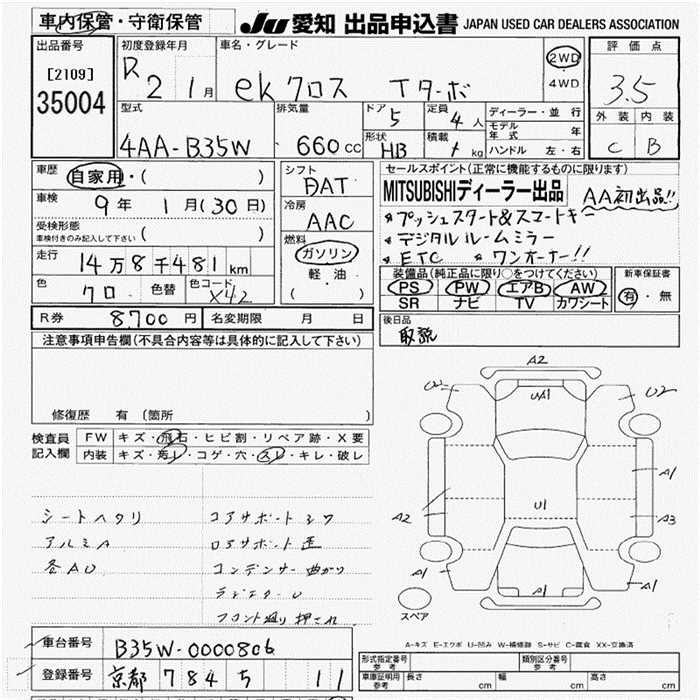 車内保管・守衛保管
JU 愛知 出品申込書 JAPAN USED CAR DEALERS ASSOCIATION
出品番号
[2109]
35004
初度登録年月
R 2 1月
車名・グレード
ekクロス Tターボ
2WD
・
4WD
評価点
3.5
外装 内装
C B
型式
4AA-B35W
排気量
660 CC
ドア 5
定員 4 人
形状 HB
積載 kg
ディーラー・並行
モデル年式 年
ハンドル 左・右
車歴
自家用・( )
車検
9年 1月(30日)
受検形態
車検付きのみ記入して下さい ( )
走行
14万8千481km
色 クロ 色替 色コード X42
シフト
DAT
冷房
AAC
燃料
ガソリン
軽油
( )
セールスポイント(正常に機能するものに限ります)
MITSUBISHIディーラー出品 AA初出品!!
*プッシュスタート&スマートキー
*デジタルルームミラー
*ETC *ワンオーナー!!
装備品(純正品に限り○をつけてください)
PS PW エアB AW
SR ナビ TV カワシート
新車保証書
有・無
R券 8,700円 名変期限 月 日
後日品
取説
注意事項申告欄(不具合内容等は具体的に記入して下さい)
修復歴 有(箇所 )
検査員記入欄
FW キズ・飛石・ヒビ割・リペア跡・X要
内装 キズ・汚レ・コゲ・穴・スレ・キレ・破レ
シートヘタリ
アルミA
各AU
コアサポートシワ
ロアサポート歪
コンデンサー曲がり
ラジエターU
フロント廻り押され
A2
U2 UA1 U2
A1
U1
A2 A3
A1 A1 A1
スペア
A-キズ E-エクボ U-凹み W-補修跡 S-サビ C-腐食 XX-交換済
車台番号 B35W-0000806
登録番号 京都 784 ち 11
形式指定番号 参考
類別区分番号 参考
車庫証明用 参考 長さ cm 幅 cm 高さ cm